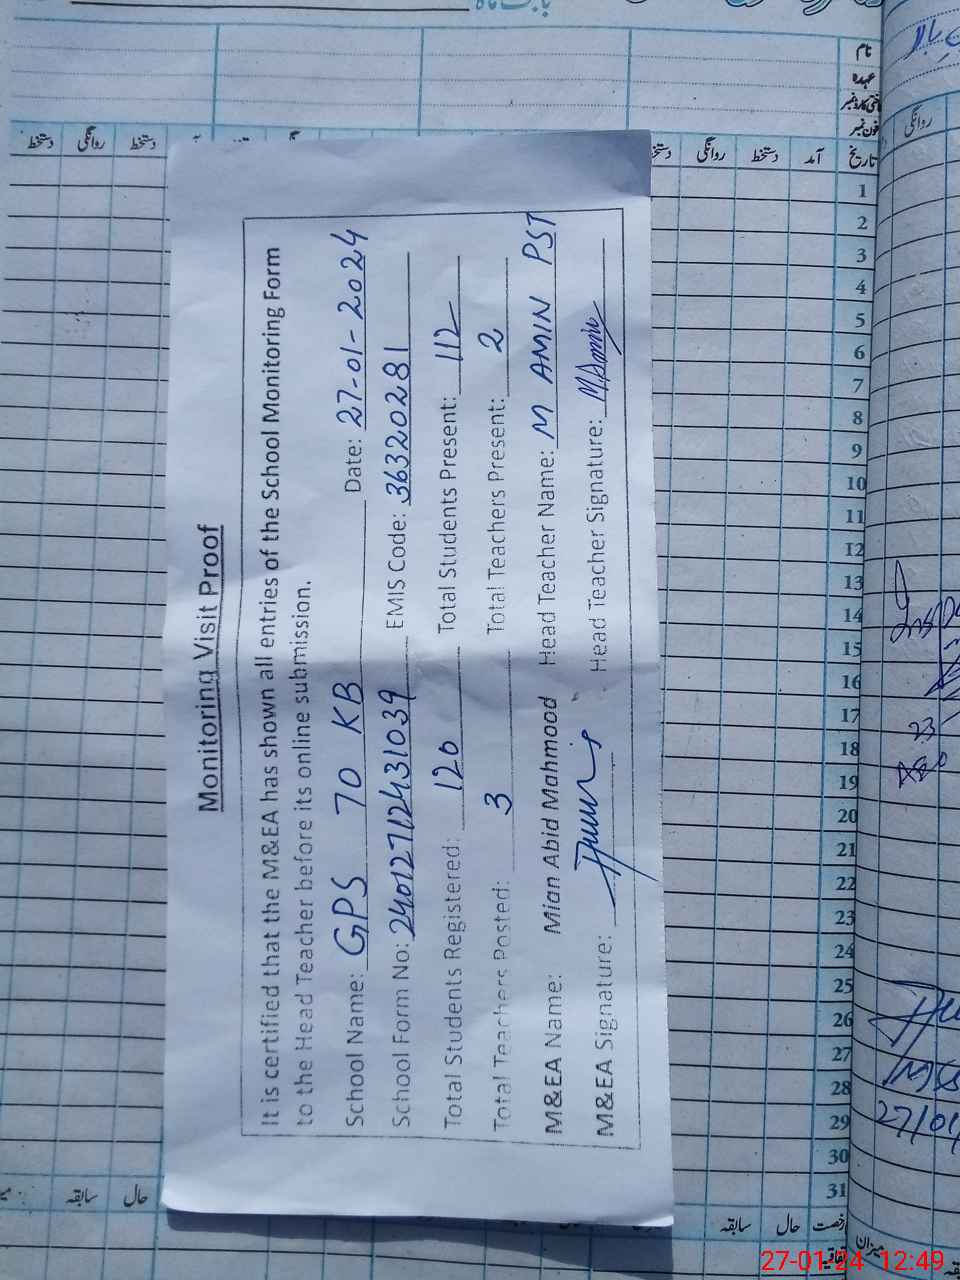 بابت ماہ
نام
عہدہ
فون نمبر
تاریخ آمد دستخط روانگی دستخط
دستخط روانگی دستخط
روانگی
1
2
3
4
5
6
7
8
9
10
11
12
13
14
15
16
17
18
19
20
21
22
23
24
25
26
27
28
29
30
31
Monitoring Visit Proof
It is certified that the M&EA has shown all entries of the School Monitoring Form
to the Head Teacher before its online submission.
School Name: GPS 70 KB Date: 27-01-2024
School Form No: 24012712431039 EMIS Code: 36320281
Total Students Registered: 120 Total Students Present: 112
Total Teachers Posted: 3 Total Teachers Present: 2
M&EA Name: Mian Abid Mahmood Head Teacher Name: M AMIN PST
M&EA Signature: Head Teacher Signature: M.Amin
23
27/01
رخصت حال سابقہ
اتفاقیہ
میزان
حال سابقہ
27-01-24 12:49